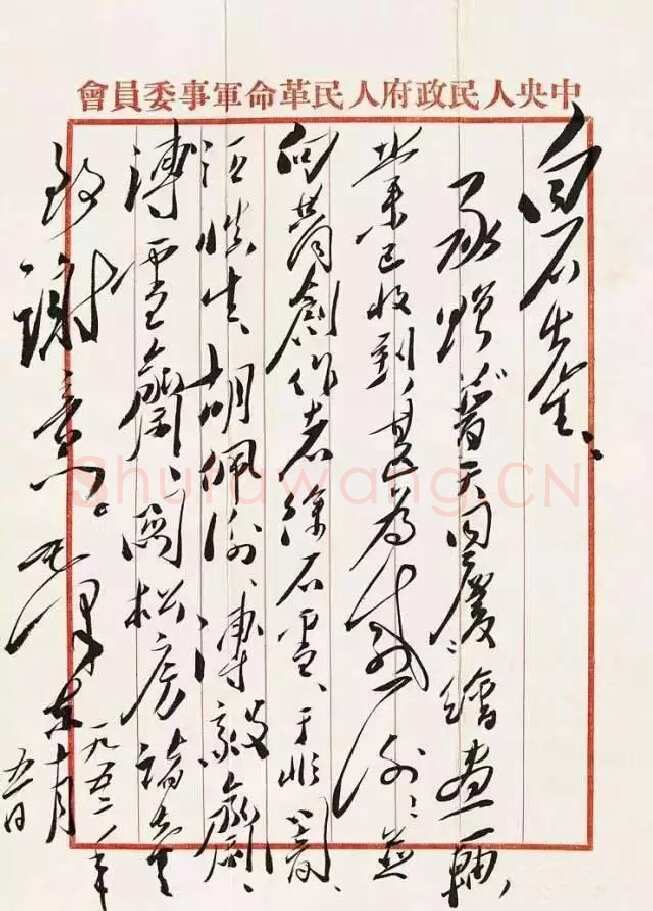 中央人民政府人民革命軍事委員會
白石先生：
承贈普天同慶繪畫一軸，
業已收到，甚為感謝！並
向共同創作者徐石雪、于非闇、
汪慎生、胡佩衡、溥毅齋、
溥雪齋、關松房諸先生
致謝意。毛澤東
一九五二年
十月
五日
Shufawang.CN